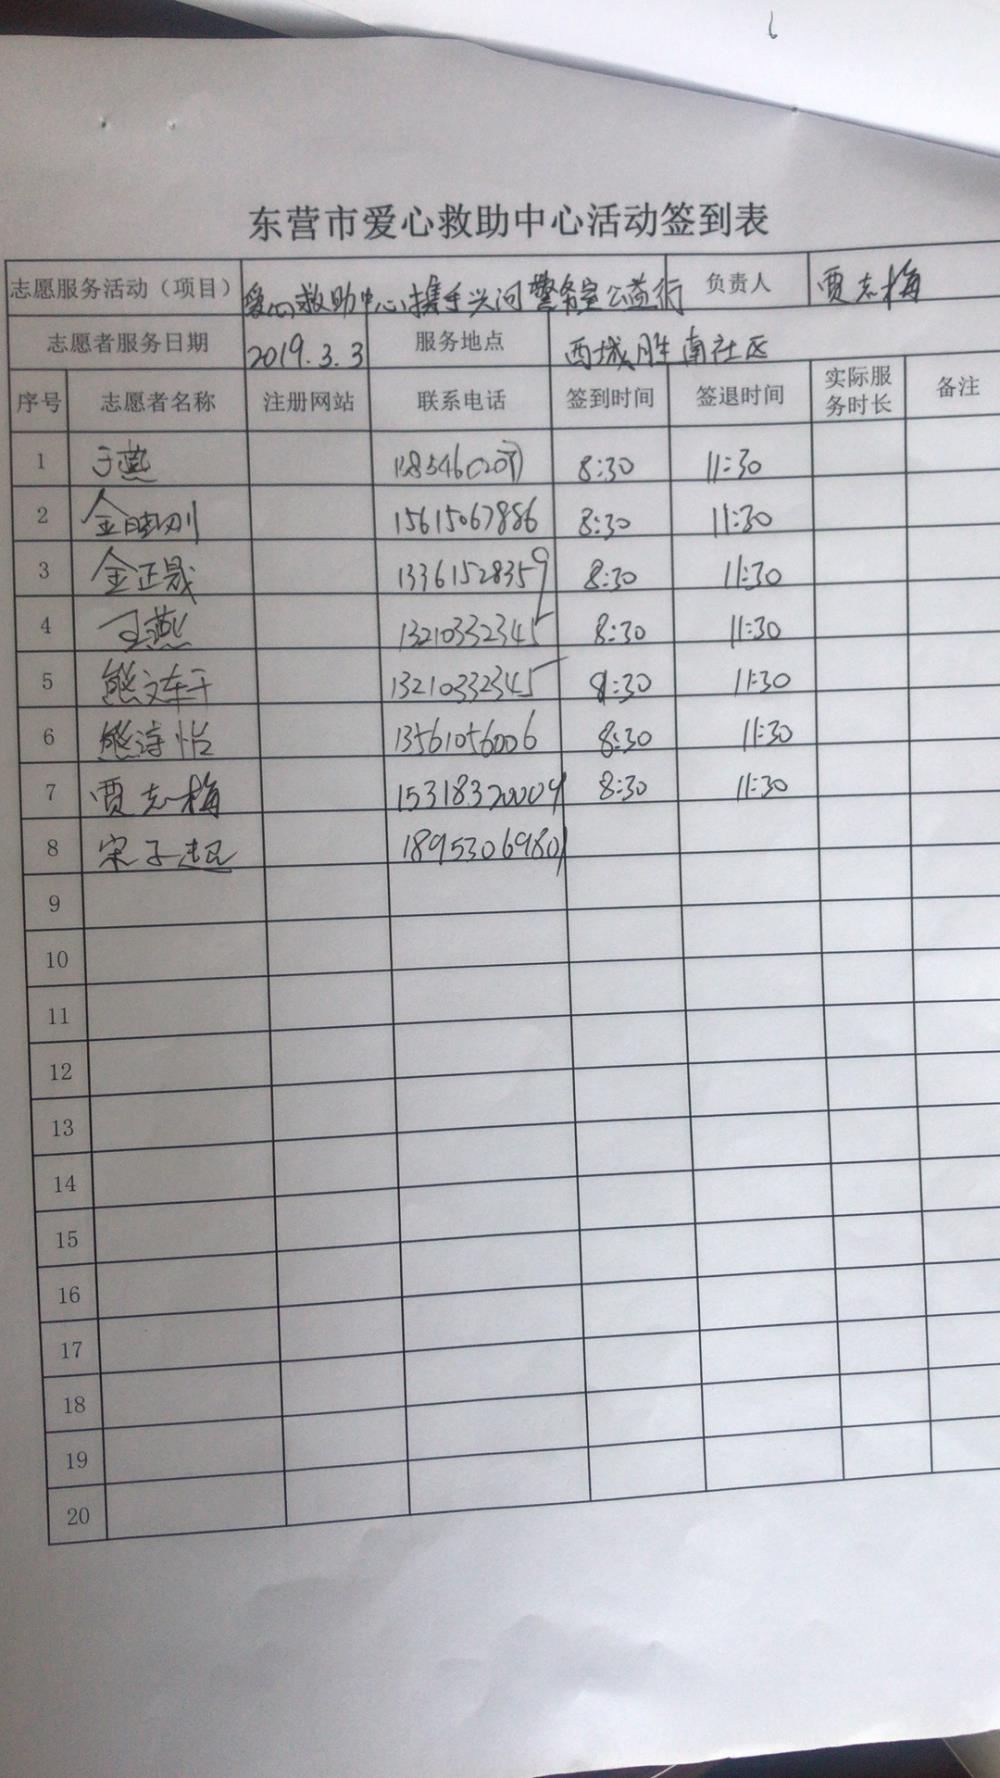 东营市爱心救助中心活动签到表
志愿服务活动（项目） 爱心救助中心携手兴河警务室公益行 负责人 贾志梅
志愿者服务日期 2019.3.3 服务地点 西城胜南社区
序号 志愿者名称 注册网站 联系电话 签到时间 签退时间 实际服务时长 备注
1 于燕 8:30 11:30
2 15615067886 8:30 11:30
3 金正晟 13361528359 8:30 11:30
4 王燕 13210332345 8:30 11:30
5 13210332345 8:30 11:30
6 熊诗怡 13561056006 8:30 11:30
7 贾志梅 15318320009 8:30 11:30
8 宋子起 18953069801
9
10
11
12
13
14
15
16
17
18
19
20